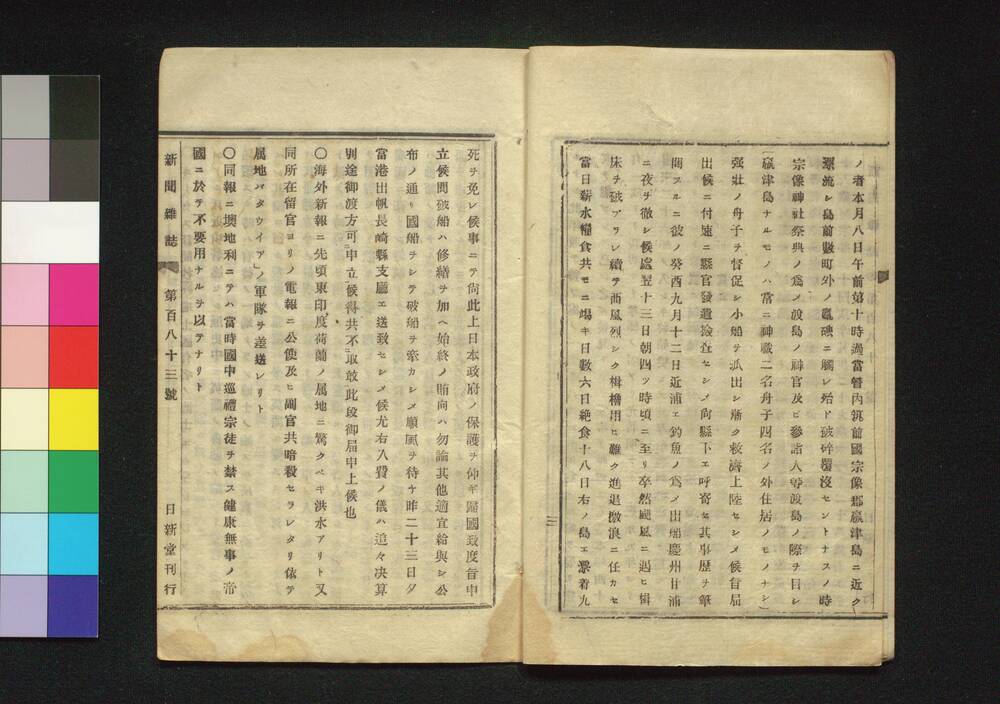 ノ者本月八日午前第十時過當管内筑前國宗像郡嬴津島ニ近ク
漂流シ島前數町外ノ亂礁ニ觸レ殆ド破碎覆沒セントナスノ時
宗像神社祭典ノ爲メ渡島ノ神官及ビ參詣人等渡島ノ際ヲ目シ
(嬴津島ナルモノハ當ニ神職二名舟子四名ノ外住居ノモノナシ)
强壯ノ舟子ヲ督促シ小船ヲ派出シ漸ク救濟上陸セシメ候旨屆
出候ニ付速ニ縣官發遣撿査セシメ向縣下エ呼寄セ其事歴ヲ筆
問スルニ彼ノ癸酉九月十二日近浦エ釣魚ノ爲メ出船慶州甘浦
ニ夜ヲ徹シ候處翌十三日朝四ツ時頃ニ至リ卒然颶風ニ遇ヒ楫
床ヲ破アリシ續テ西風烈シク楫櫓用ヒ難ク進退激浪ニ任カセ
當日薪水糧食共モニ竭キ日數六日絶食十八日右ノ島エ漂着九
死ヲ免レ候事ニテ尙此上日本政府ノ保護ヲ仰ギ歸國致度旨申
立候間破船ハ修繕ヲ加ヘ始終ノ賄向ハ勿論其他適宜給與シ公
布ノ通リ國船ヲシテ破船ヲ牽カシメ順風ヲ待チ昨二十三日夕
當港出帆長崎縣支廳エ送致セシメ候尤右入費ノ儀ハ追々决算
別途御渡方可申立候得共不取敢此段御屆申上候也
〇海外新報ニ先頃東印度荷蘭ノ属地ニ驚クベキ洪水アリト又
同所在留官ヨリノ電報ニ公使及ヒ副官共暗殺セラレタリ依テ
属地バタウイア」ノ軍隊ヲ差送レリト
〇同報ニ墺地利ニテハ當時國中巡禮宗徒ヲ禁ス健康無事ノ帝
國ニ於テ不要用ナルヲ以テナリト
新聞雜誌 第百八十三號 日新堂刊行